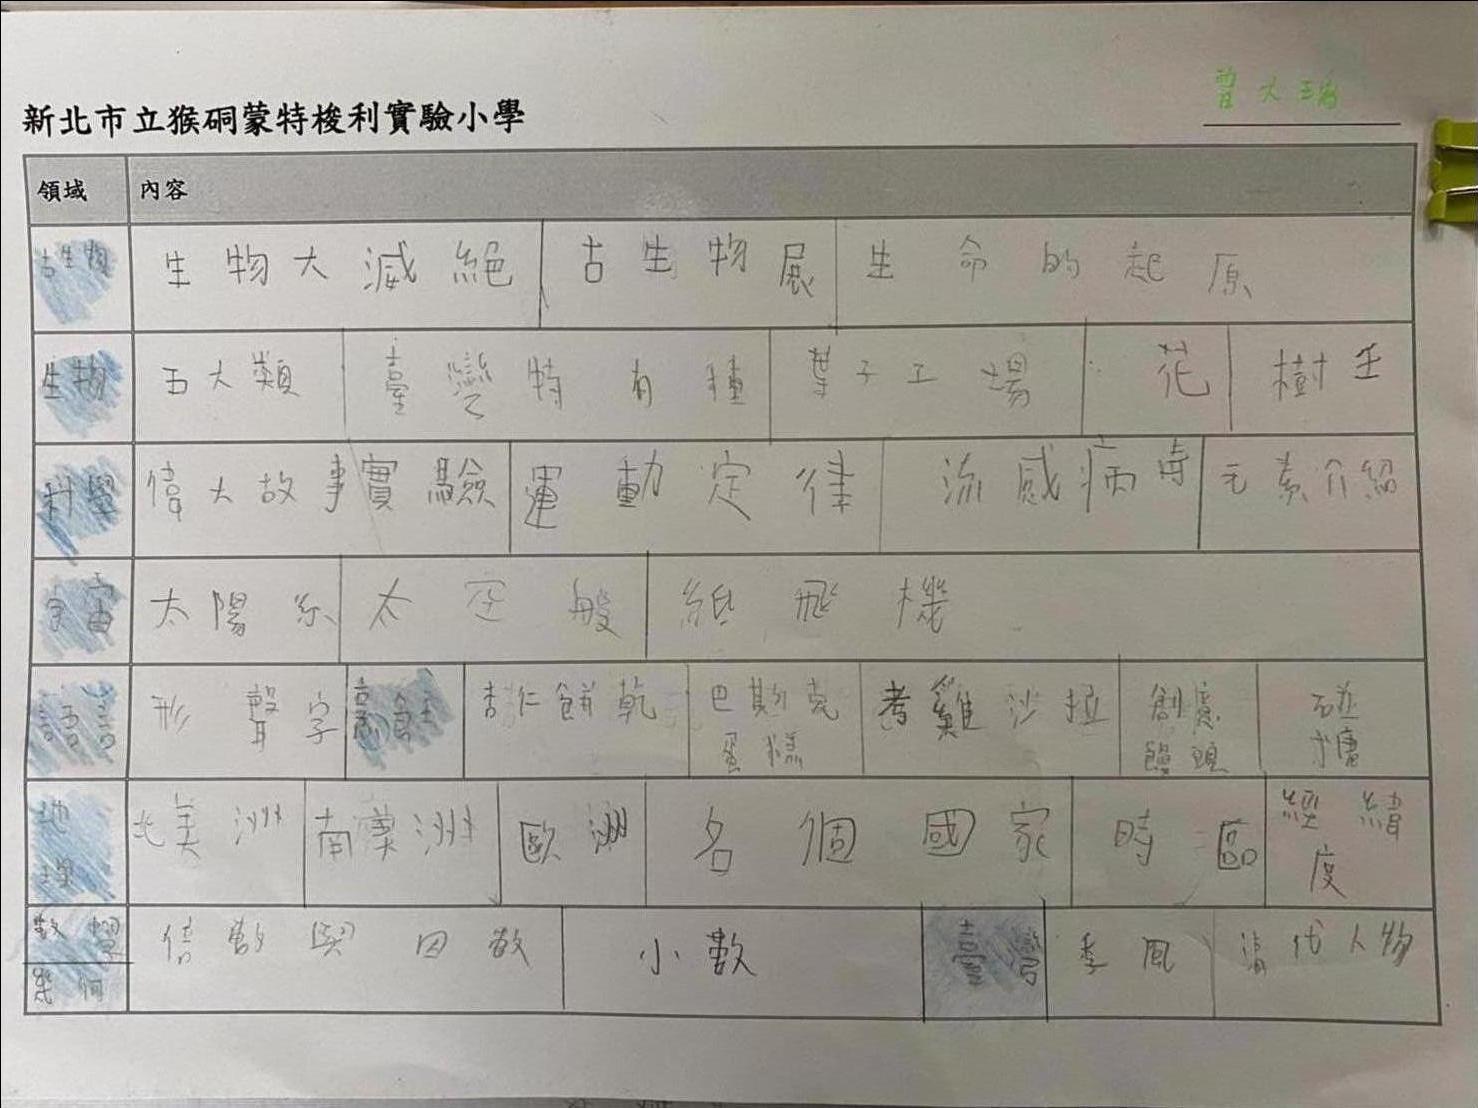 曾大瑀
新北市立猴硐蒙特梭利實驗小學
領域 內容
古生物 生物大滅絕 古生物展 生命的起原
生物 五大類 臺灣特有種 葉子工場 花 樹王
科學 偉大故事實驗 運動定律 流感病毒 元素介紹
宇宙 太陽系 太空般 紙飛機
語言 形聲字 高餐 杏仁餅乾 巴斯克蛋糕 考雞沙拉 創意饅頭 碰糖
地理 北美洲 南美洲 歐洲 名個國家 時區 經緯度
數學 倍數與因數 小數 臺灣 季風 清代人物
幾何